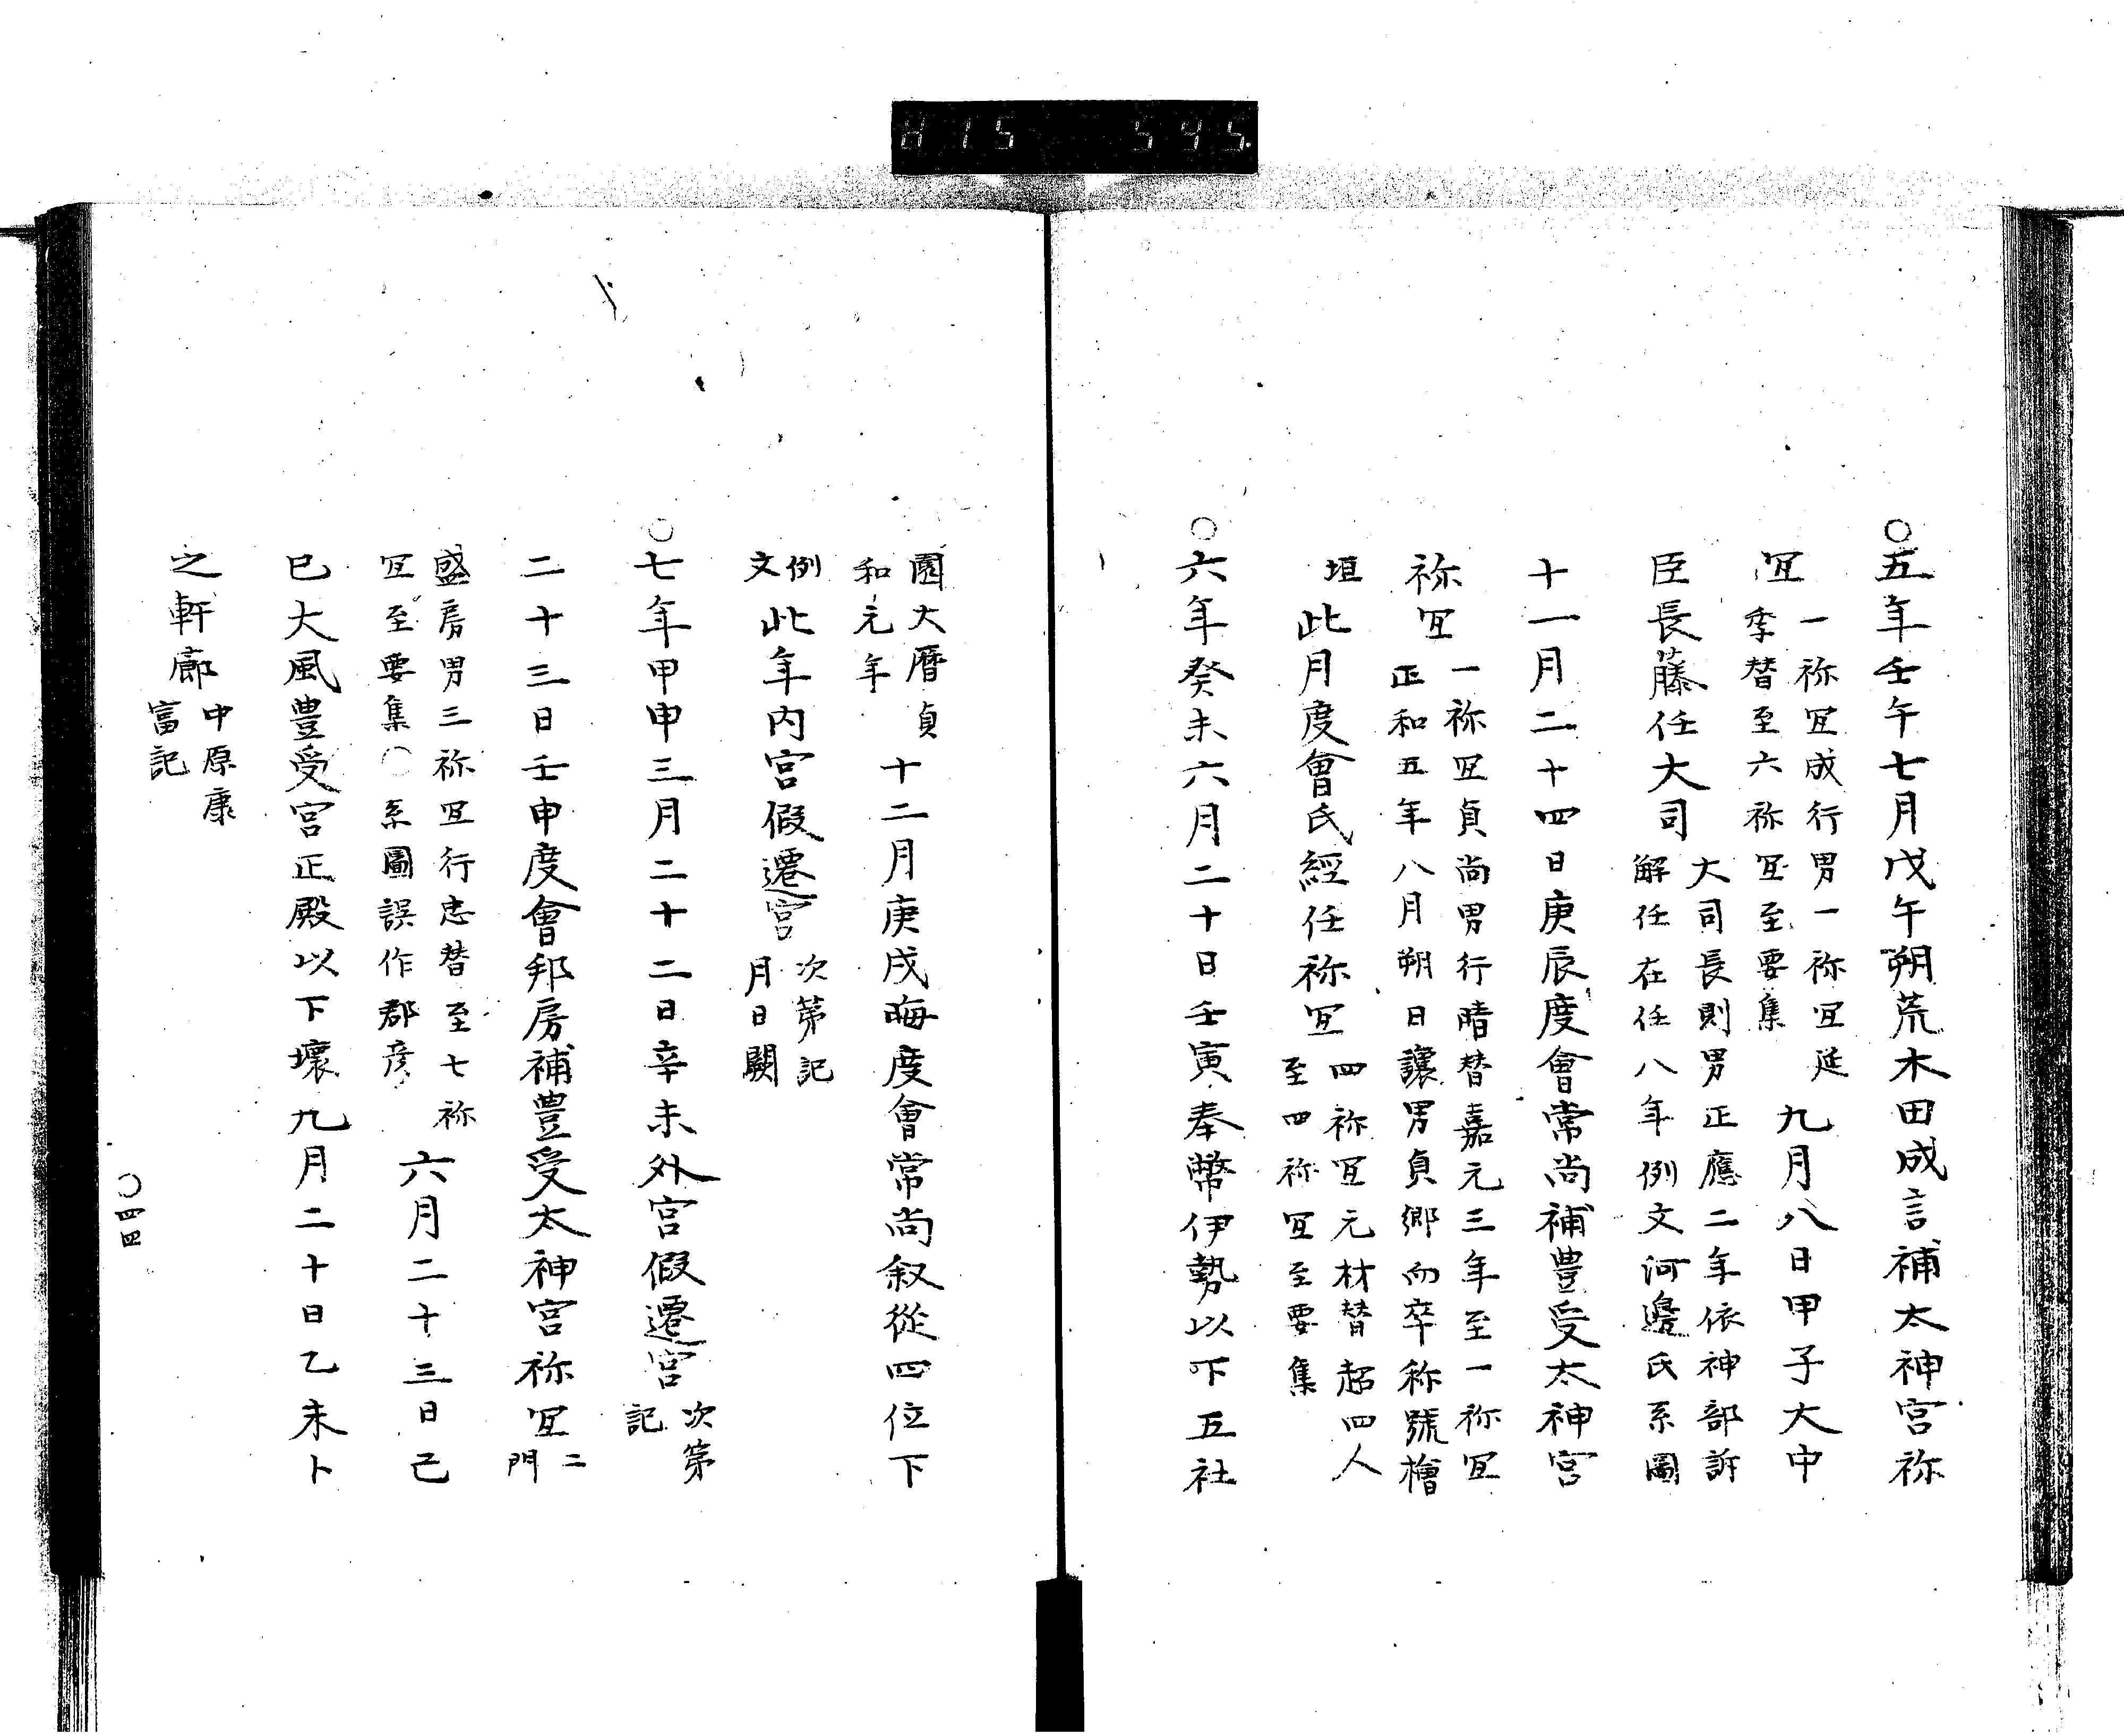 H15 545.
○五年壬午七月戊午朔荒木田成言補太神宮祢
冝
一祢冝成行男一祢冝延
季替至六祢冝至要集
九月八日甲子大中
臣長藤任大司
大司長則男正應二年依神部訴
解任在任八年例文河邊氏系圖
十一月二十四日庚辰度會常尚補豊受太神宮
祢冝
一祢冝貞尚男行晴替嘉元三年至一祢冝
正和五年八月朔日讓男貞郷而卒称號檜
垣
此月度會氏經任祢冝
四祢冝元材替超四人
至四祢冝至要集
○六年癸未六月二十日壬寅奉幣伊勢以下五社
園大暦貞
和元年
十二月庚戌晦度會常尚叙從四位下
例
文
此年内宮假遷宮
次第記
月日闕
○七年甲申三月二十二日辛未外宮假遷宮
次第
記
二十三日壬申度會邦房補豊受太神宮祢冝
二
門
盛房男三祢冝行忠替至七祢
冝至要集○系圖誤作郡彦
六月二十三日己
巳大風豊受宮正殿以下壞九月二十日乙未卜
之軒廊
中原康
富記
○四四